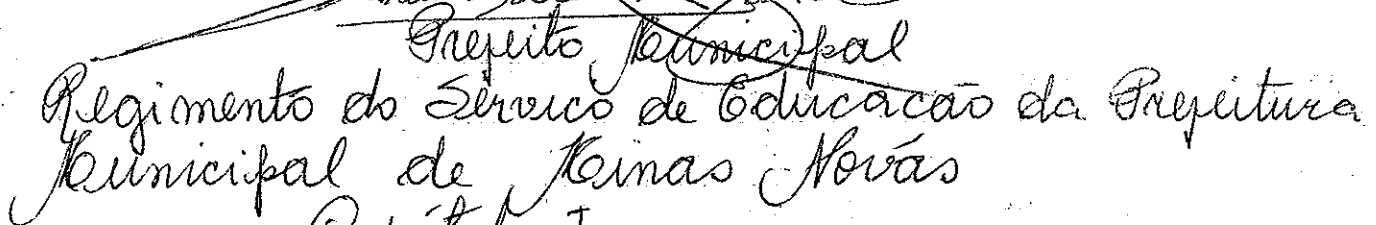 Prefeito Municipal
Regimento do Serviço de Educação da Prefeitura
Municipal de Minas Novas